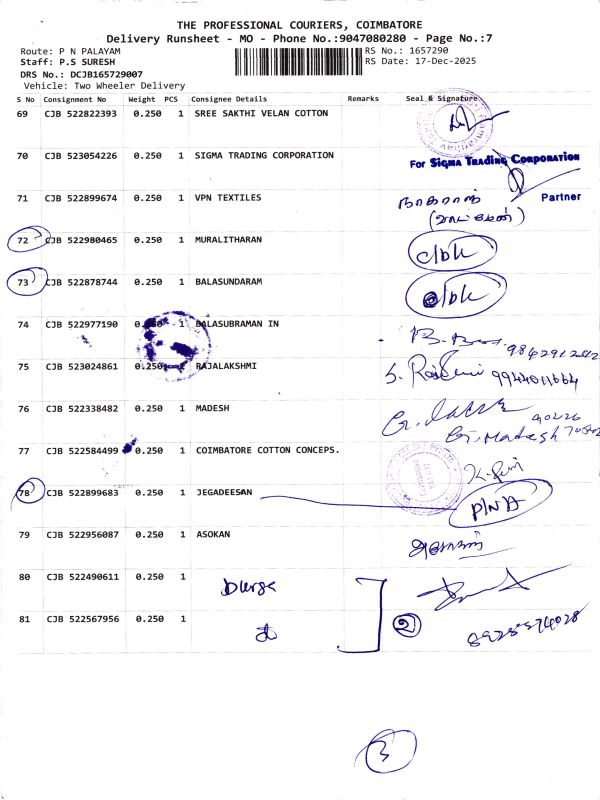 THE PROFESSIONAL COURIERS, COIMBATORE
Delivery Runsheet - MO - Phone No.:9047080280 - Page No.:7
Route: P N PALAYAM
RS No.: 1657290
Staff: P.S SURESH
RS Date: 17-Dec-2025
DRS No.: DCJB165729007
Vehicle: Two Wheeler Delivery
S No Consignment No Weight PCS Consignee Details Remarks Seal & Signature
69 CJB 522822393 0.250 1 SREE SAKTHI VELAN COTTON
70 CJB 523054226 0.250 1 SIGMA TRADING CORPORATION
For SIGMA TRADING CORPORATION
Partner
71 CJB 522899674 0.250 1 VPN TEXTILES
72 CJB 522980465 0.250 1 MURALITHARAN c/bk
73 CJB 522878744 0.250 1 BALASUNDARAM c/bk
74 CJB 522977190 0.250 1 BALASUBRAMAN IN
75 CJB 523024861 0.250 1 RAJALAKSHMI 9944011664
76 CJB 522338482 0.250 1 MADESH
G. Madesh
77 CJB 522584499 0.250 1 COIMBATORE COTTON CONCEPS.
78 CJB 522899683 0.250 1 JEGADEESAN P/N/A
79 CJB 522956087 0.250 1 ASOKAN அசோகன்
80 CJB 522490611 0.250 1 Durga
81 CJB 522567956 0.250 1 2
3